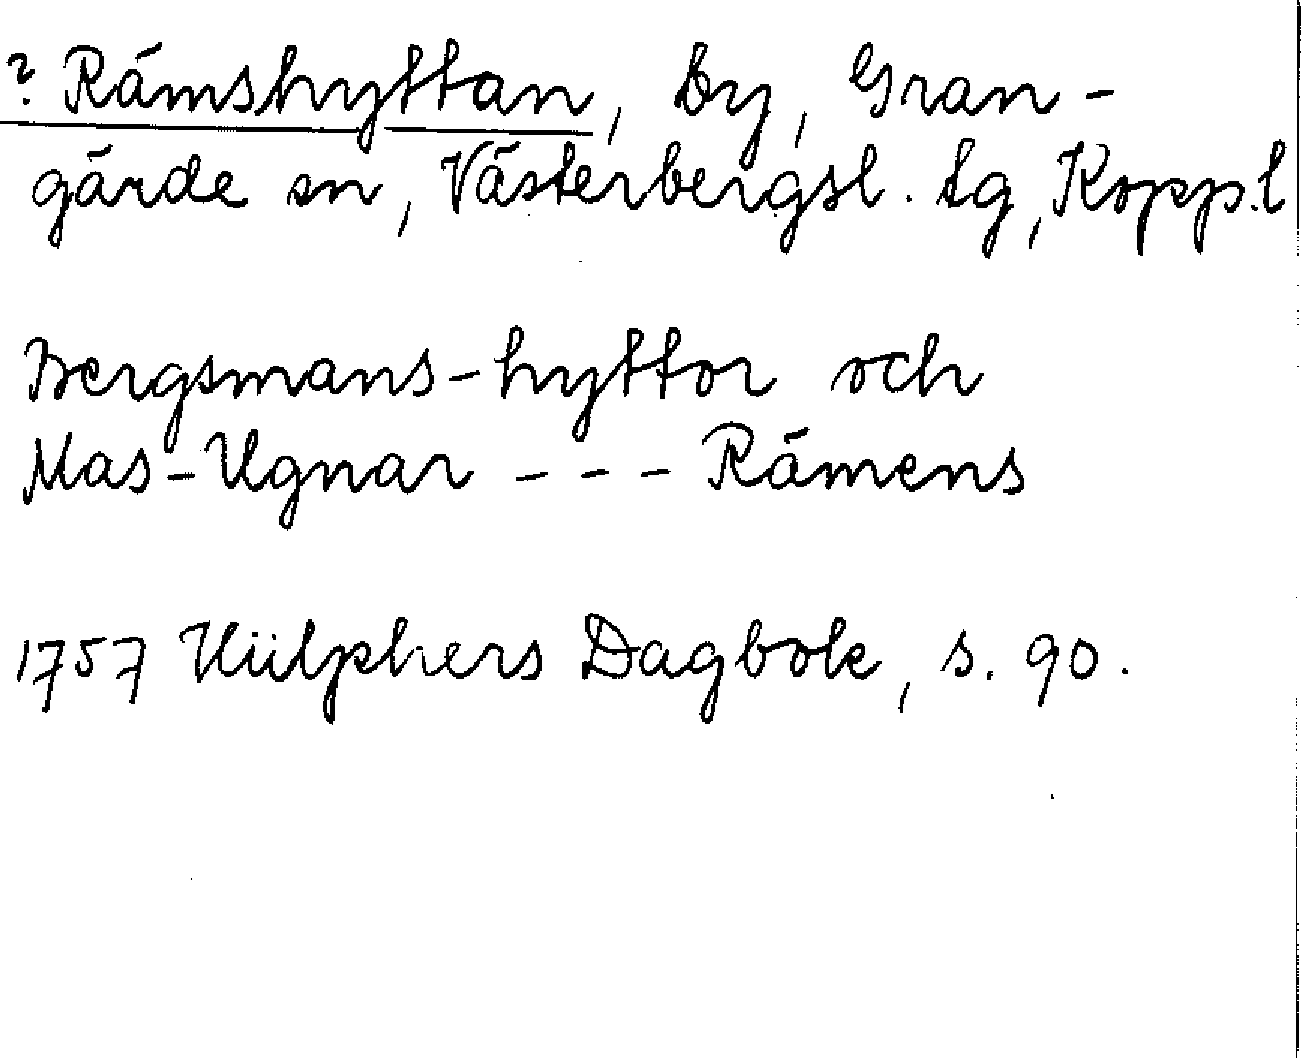 ? Rämshyttan, by, Gran-
gärde sn, Västerbergsl. tg, Kopp.l
Bergsmans-hyttor och
Mas-Ugnar - - - Rämens
1757 Hülphers Dagbok, s. 90.